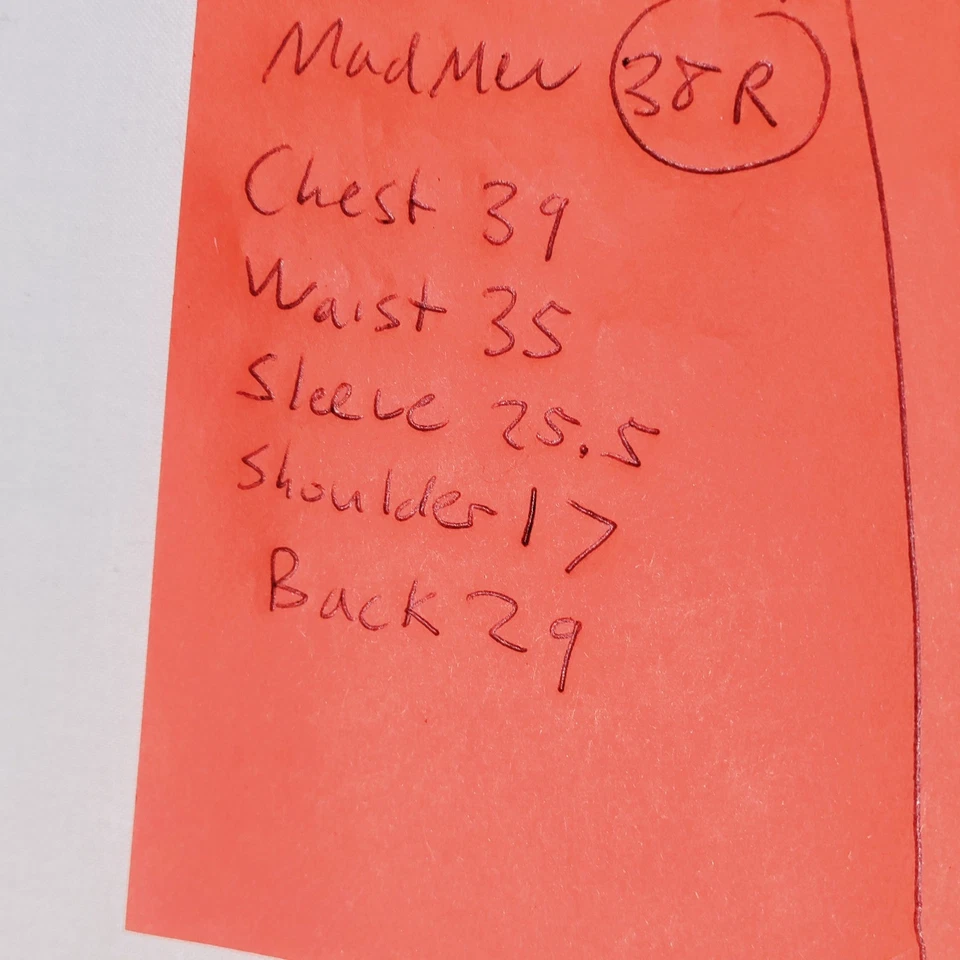 Mad Men 38R
Chest 39
Waist 35
Sleeve 25.5
Shoulder 17
Back 29